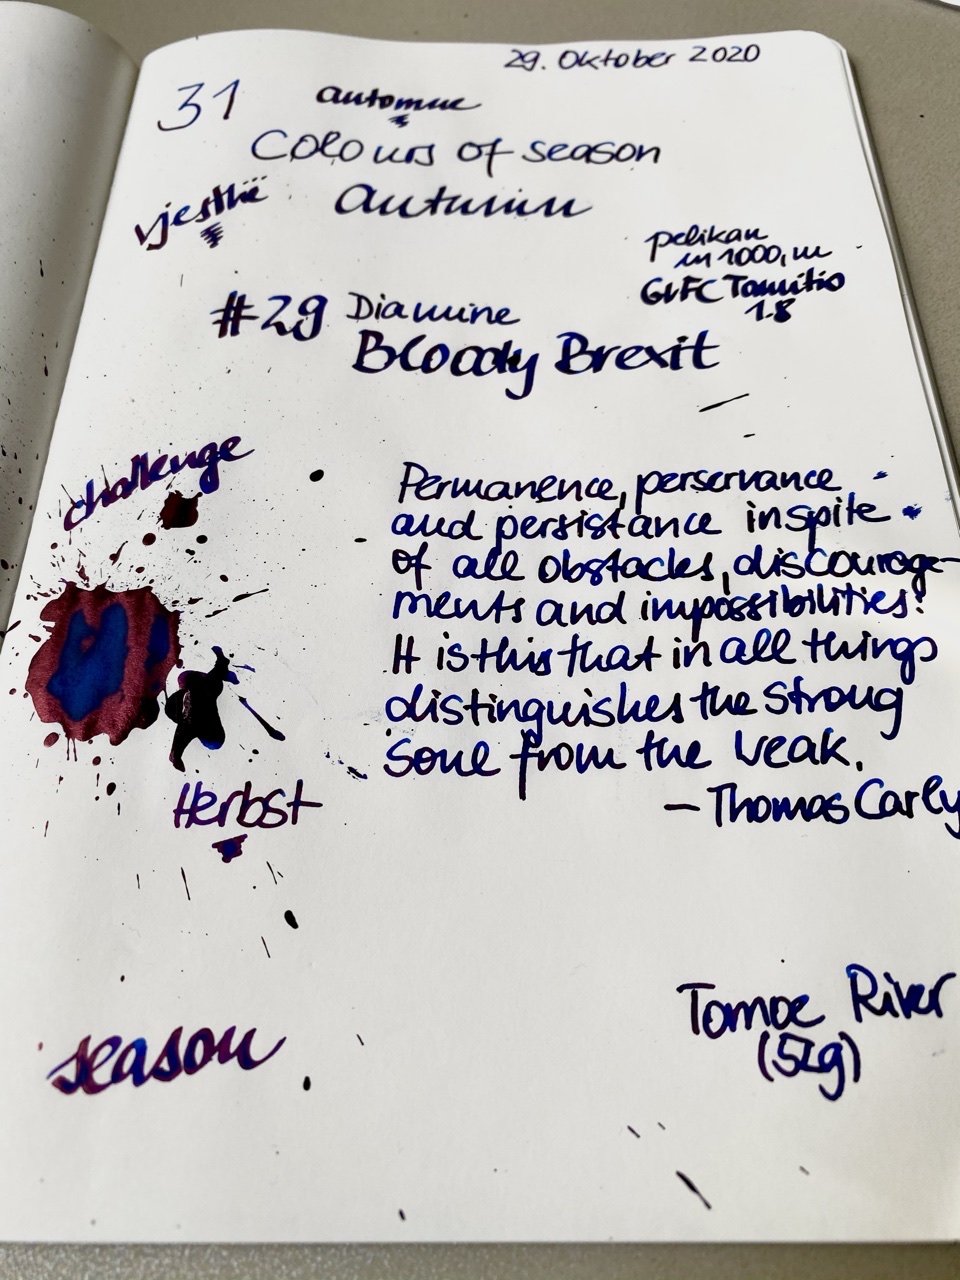 29. Oktober 2020
31
automne
Colours of season
vjeshtë
Autumn
pelikan
m1000, m
GvFC Tamitio
1.8
#29 Diamine
Bloody Brexit
challenge
Permanence, perservance
and persistance inspite
of all obstacles, discourage-
ments and impossibilities:
It is this that in all things
distinguishes the strong
soul from the weak.
– Thomas Carly
Herbst
Tomoe River
(52g)
season